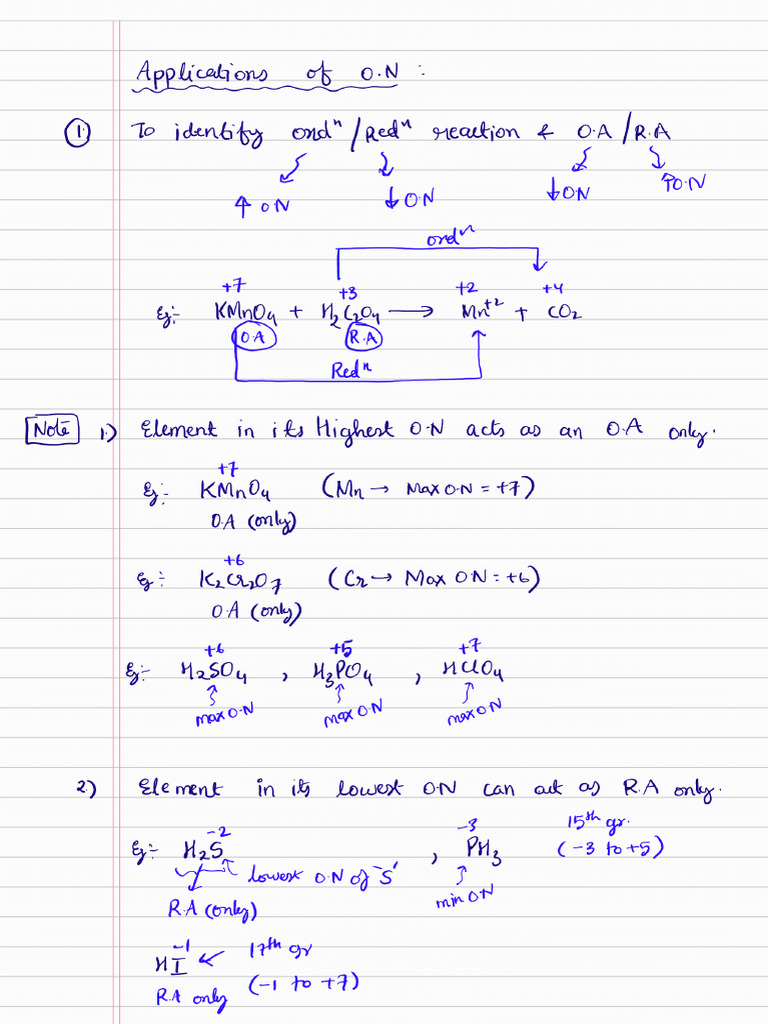 Applications of O.N :
① To identify oxdⁿ / Redⁿ reaction & O.A / R.A
↑ O.N ↓ O.N ↓ O.N ↑ O.N
oxdⁿ
+7 +3 +2 +4
Eg:- KMnO₄ + H₂C₂O₄ ⟶ Mn⁺² + CO₂
O.A R.A
Redⁿ
Note 1.) Element in its Highest O.N acts as an O.A only.
+7
Eg:- KMnO₄ (Mn → Max O.N = +7)
O.A (only)
+6
Eg:- K₂Cr₂O₇ (Cr → Max O.N = +6)
O.A (only)
+6 +5 +7
Eg:- H₂SO₄ , H₃PO₄ , HClO₄
max O.N max O.N max O.N
2.) Element in its lowest O.N can act as R.A only.
-2 -3 15th gr.
Eg:- H₂S , PH₃ (-3 to +5)
lowest O.N of 'S' min O.N
R.A (only)
-1 17th gr
HI (-1 to +7)
R.A only